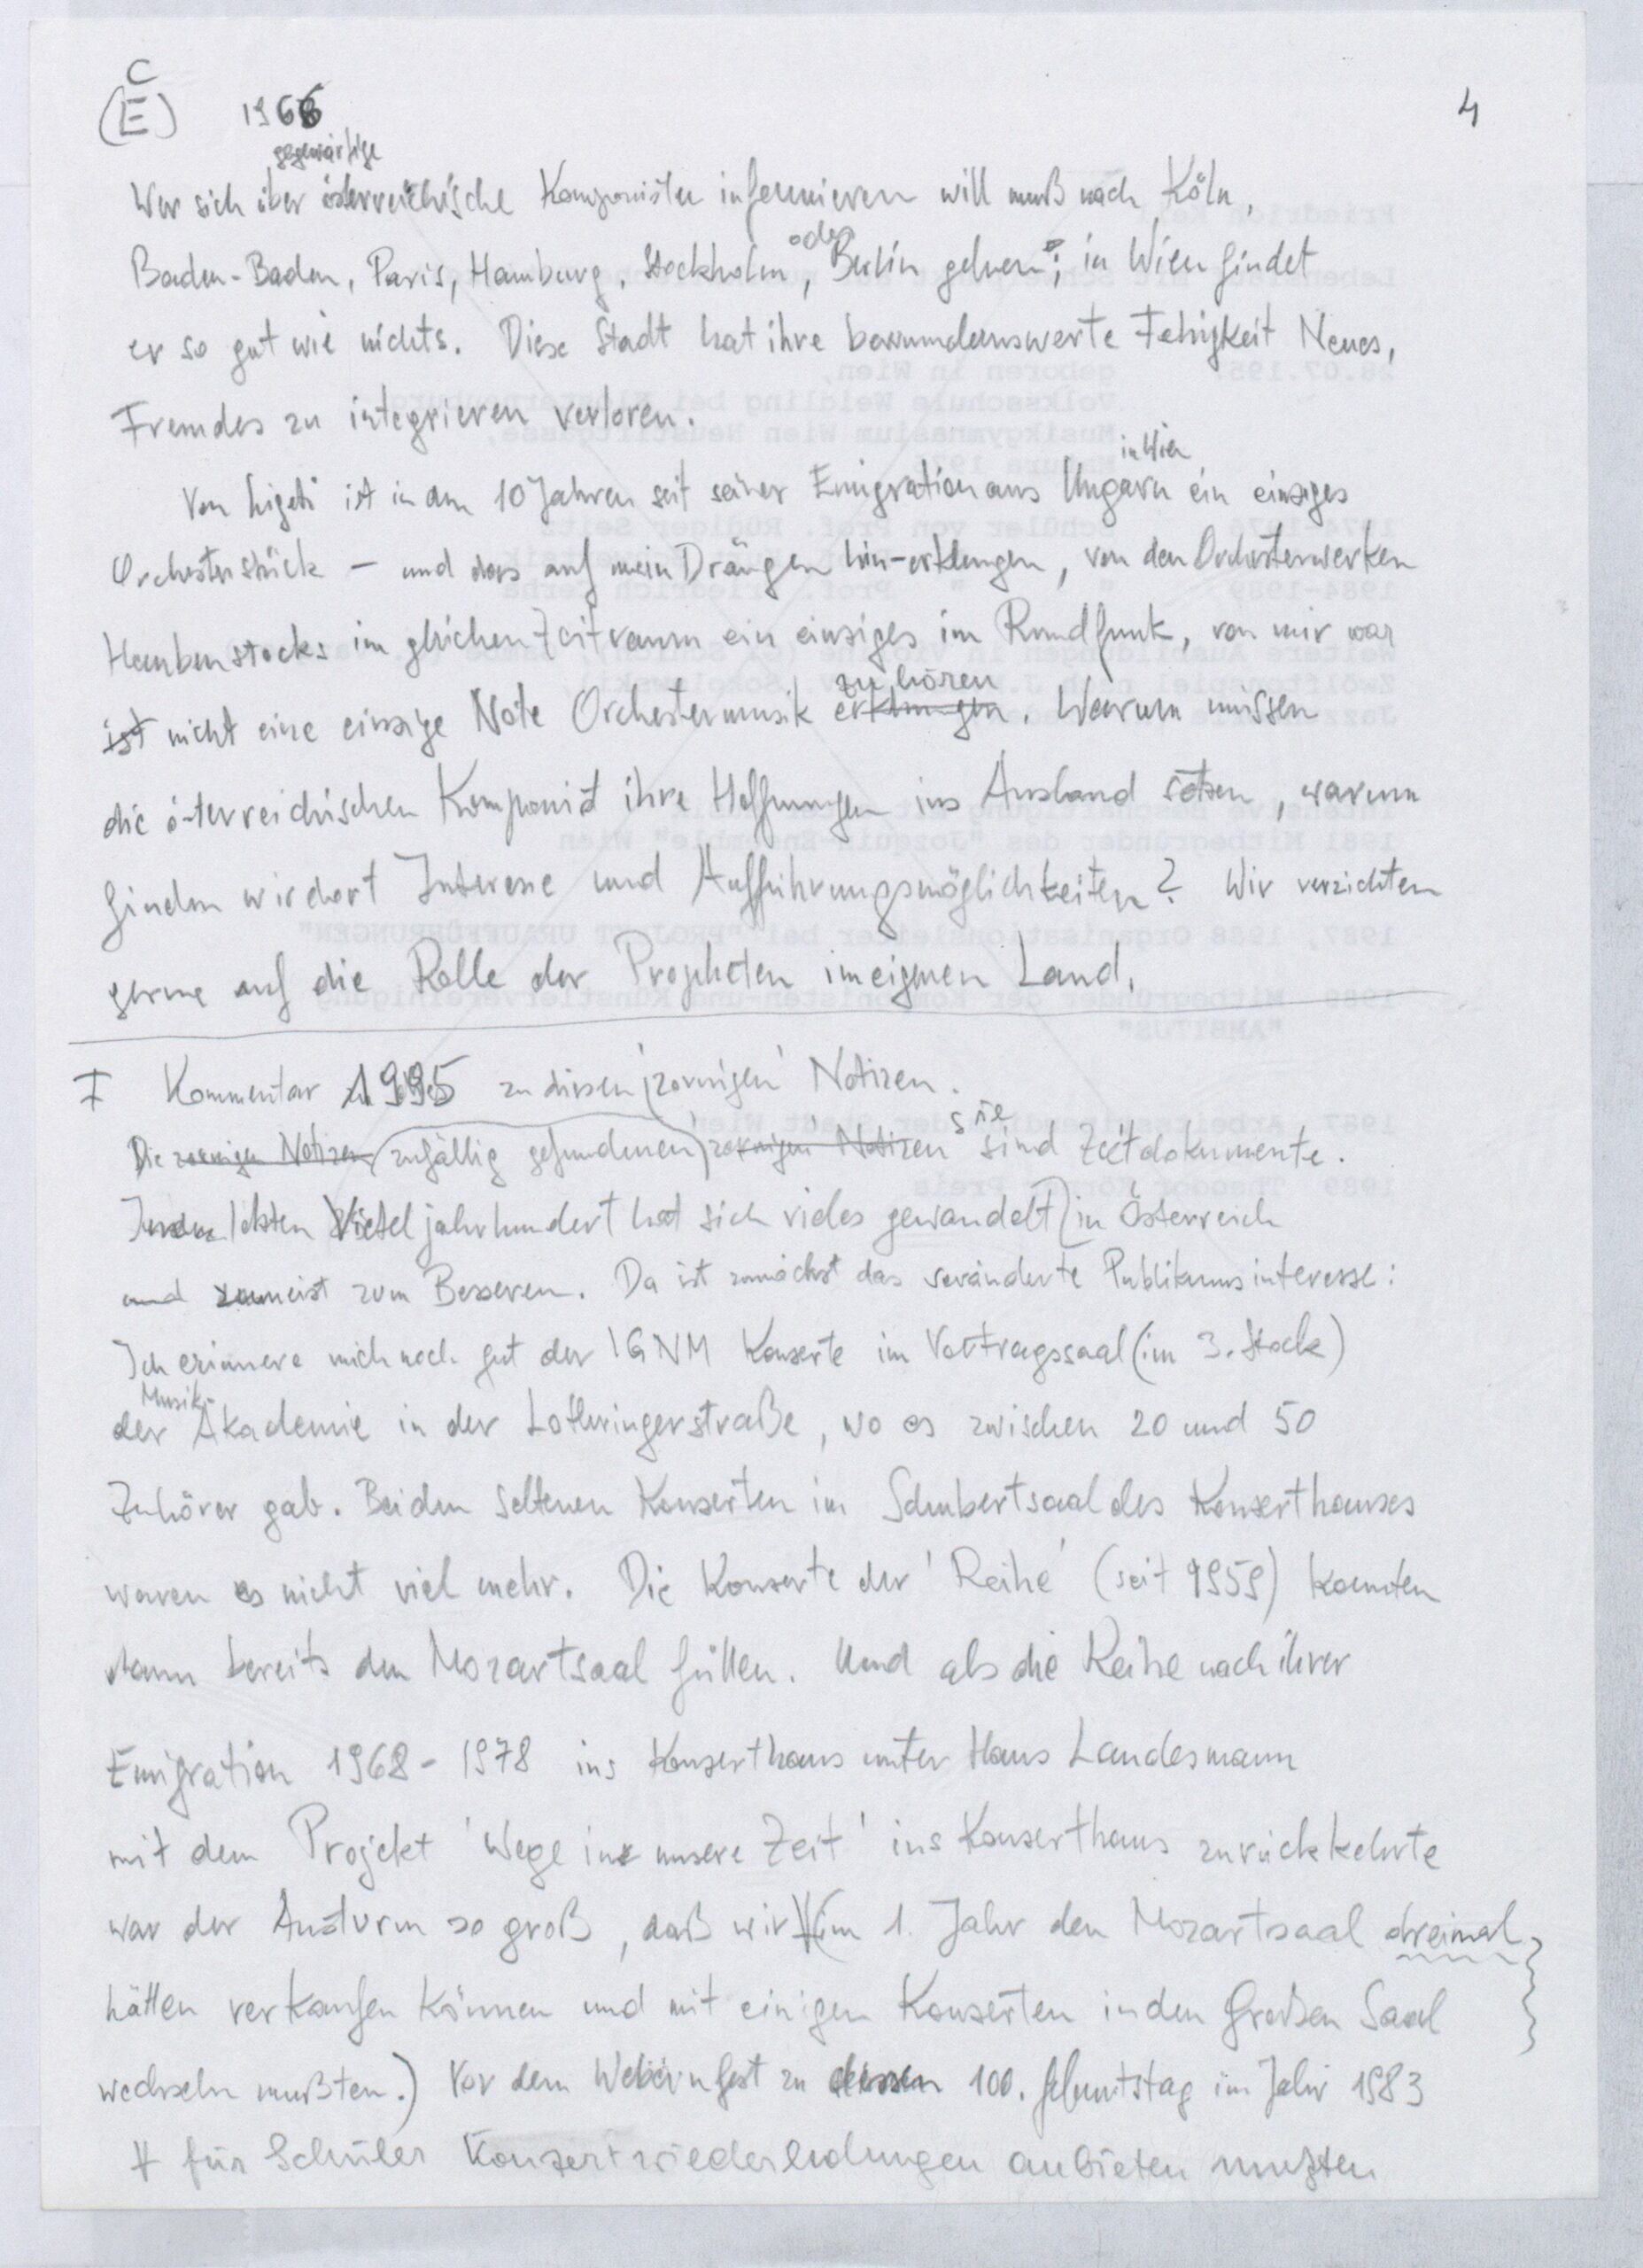 C
(E) 1966 4
gegenwärtige
Wer sich über österreichische Komponisten informieren will muß nach Köln,
oder
Baden-Baden, Paris, Hamburg, Stockholm, Berlin gehen; in Wien findet
er so gut wie nichts. Diese Stadt hat ihre bewundernswerte Fähigkeit Neues,
Fremdes zu integrieren verloren.
in Wien
Von Ligeti ist in den 10 Jahren seit seiner Emigration aus Ungarn ein einziges
Orchesterstück – und das auf mein Drängen hin-erklungen, von den Orchesterwerken
Haubenstocks im gleichen Zeitraum ein einziges im Rundfunk, von mir war
zu hören
ist nicht eine einzige Note Orchestermusik erklungen. Warum müssen
die österreichischen Komponist ihre Hoffnungen ins Ausland setzen, warum
finden wir dort Interesse und Aufführungsmöglichkeiten? Wir verzichten
gerne auf die Rolle der Propheten im eigenen Land.
F Kommentar 1995 zu diesen 'zornigen' Notizen.
sie
Die zornigen Notizen (zufällig gefundenen) zornigen Notizen sind Zeitdokumente.
In den letzten Vierteljahrhundert hat sich vieles gewandelt in Österreich
und zumeist zum Besseren. Da ist zunächst das veränderte Publikumsinteresse:
Ich erinnere mich noch gut der IGNM Konzerte im Vortragssaal (im 3. Stock)
Musik-
der Akademie in der Lothringerstraße, wo es zwischen 20 und 50
Zuhörer gab. Bei den seltenen Konzerten im Schubertsaal des Konzerthauses
waren es nicht viel mehr. Die Konzerte der 'Reihe' (seit 1959) konnten
dann bereits den Mozartsaal füllen. Und als die Reihe nach ihrer
Emigration 1968 - 1978 ins Konzerthaus unter Hans Landesmann
mit dem Projekt 'Wege in unsere Zeit' ins Konzerthaus zurückkehrte
war der Ansturm so groß, daß wir (im 1. Jahr den Mozartsaal dreimal
hätten verkaufen können und mit einigen Konzerten in den Großen Saal
wechseln mußten.) Vor dem Webernfest zu dessen 100. Geburtstag im Jahr 1983
# für Schüler Konzertwiederholungen anbieten mußten